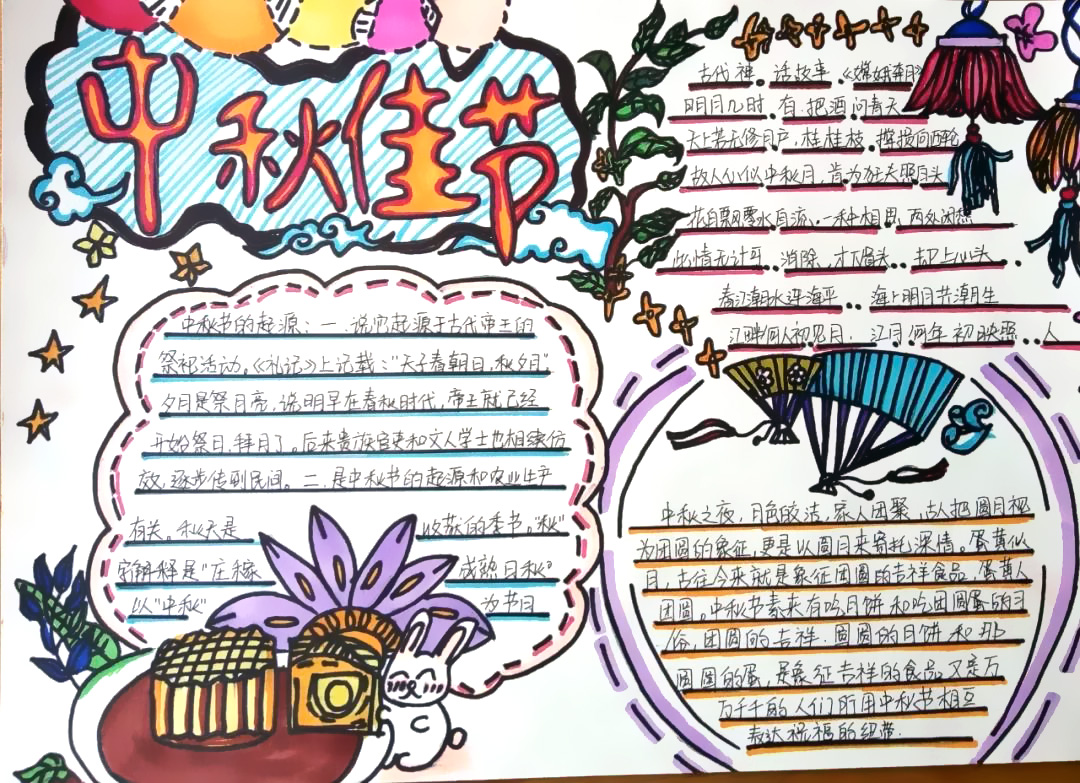 中秋佳节
中秋节的起源：一.说它起源于古代帝王的
祭祀活动。《礼记》上记载："天子春朝日，秋夕月"。
夕月是祭月亮，说明早在春秋时代，帝王就已经
开始祭日、拜月了。后来贵族官吏和文人学士也相继仿
效，逐步传到民间。二.是中秋节的起源和农业生产
有关。秋天是 收获的季书。"秋"
字解释是"庄稼 成熟日秋"
以"中秋" 为节日
古代神话故事《嫦娥奔月》
明月几时有 把酒问青天
天上若无修月户，桂枝
故人 似中秋月，肯为 照 头
花自飘零水自流.一种相思，两处闲愁
此情无计可 消除，才下眉头 却上心头
春江潮水连海平 海上明月共潮生
江畔何人初见月 江月何年初照 人
中秋之夜，月色皎洁，家人团聚，古人把圆月视
为团圆的象征，更是以圆月来寄托深情。蛋黄似
月，古往今来就是象征团圆的吉祥食品，蛋黄人
团圆。中秋节素来有吃月饼和吃团圆蛋的习
俗，团圆的吉祥.圆圆的月饼和那
圆圆的蛋，是象征吉祥的食品 又是万
万千千的人们所用中秋节相互
表达祝福的纽带.